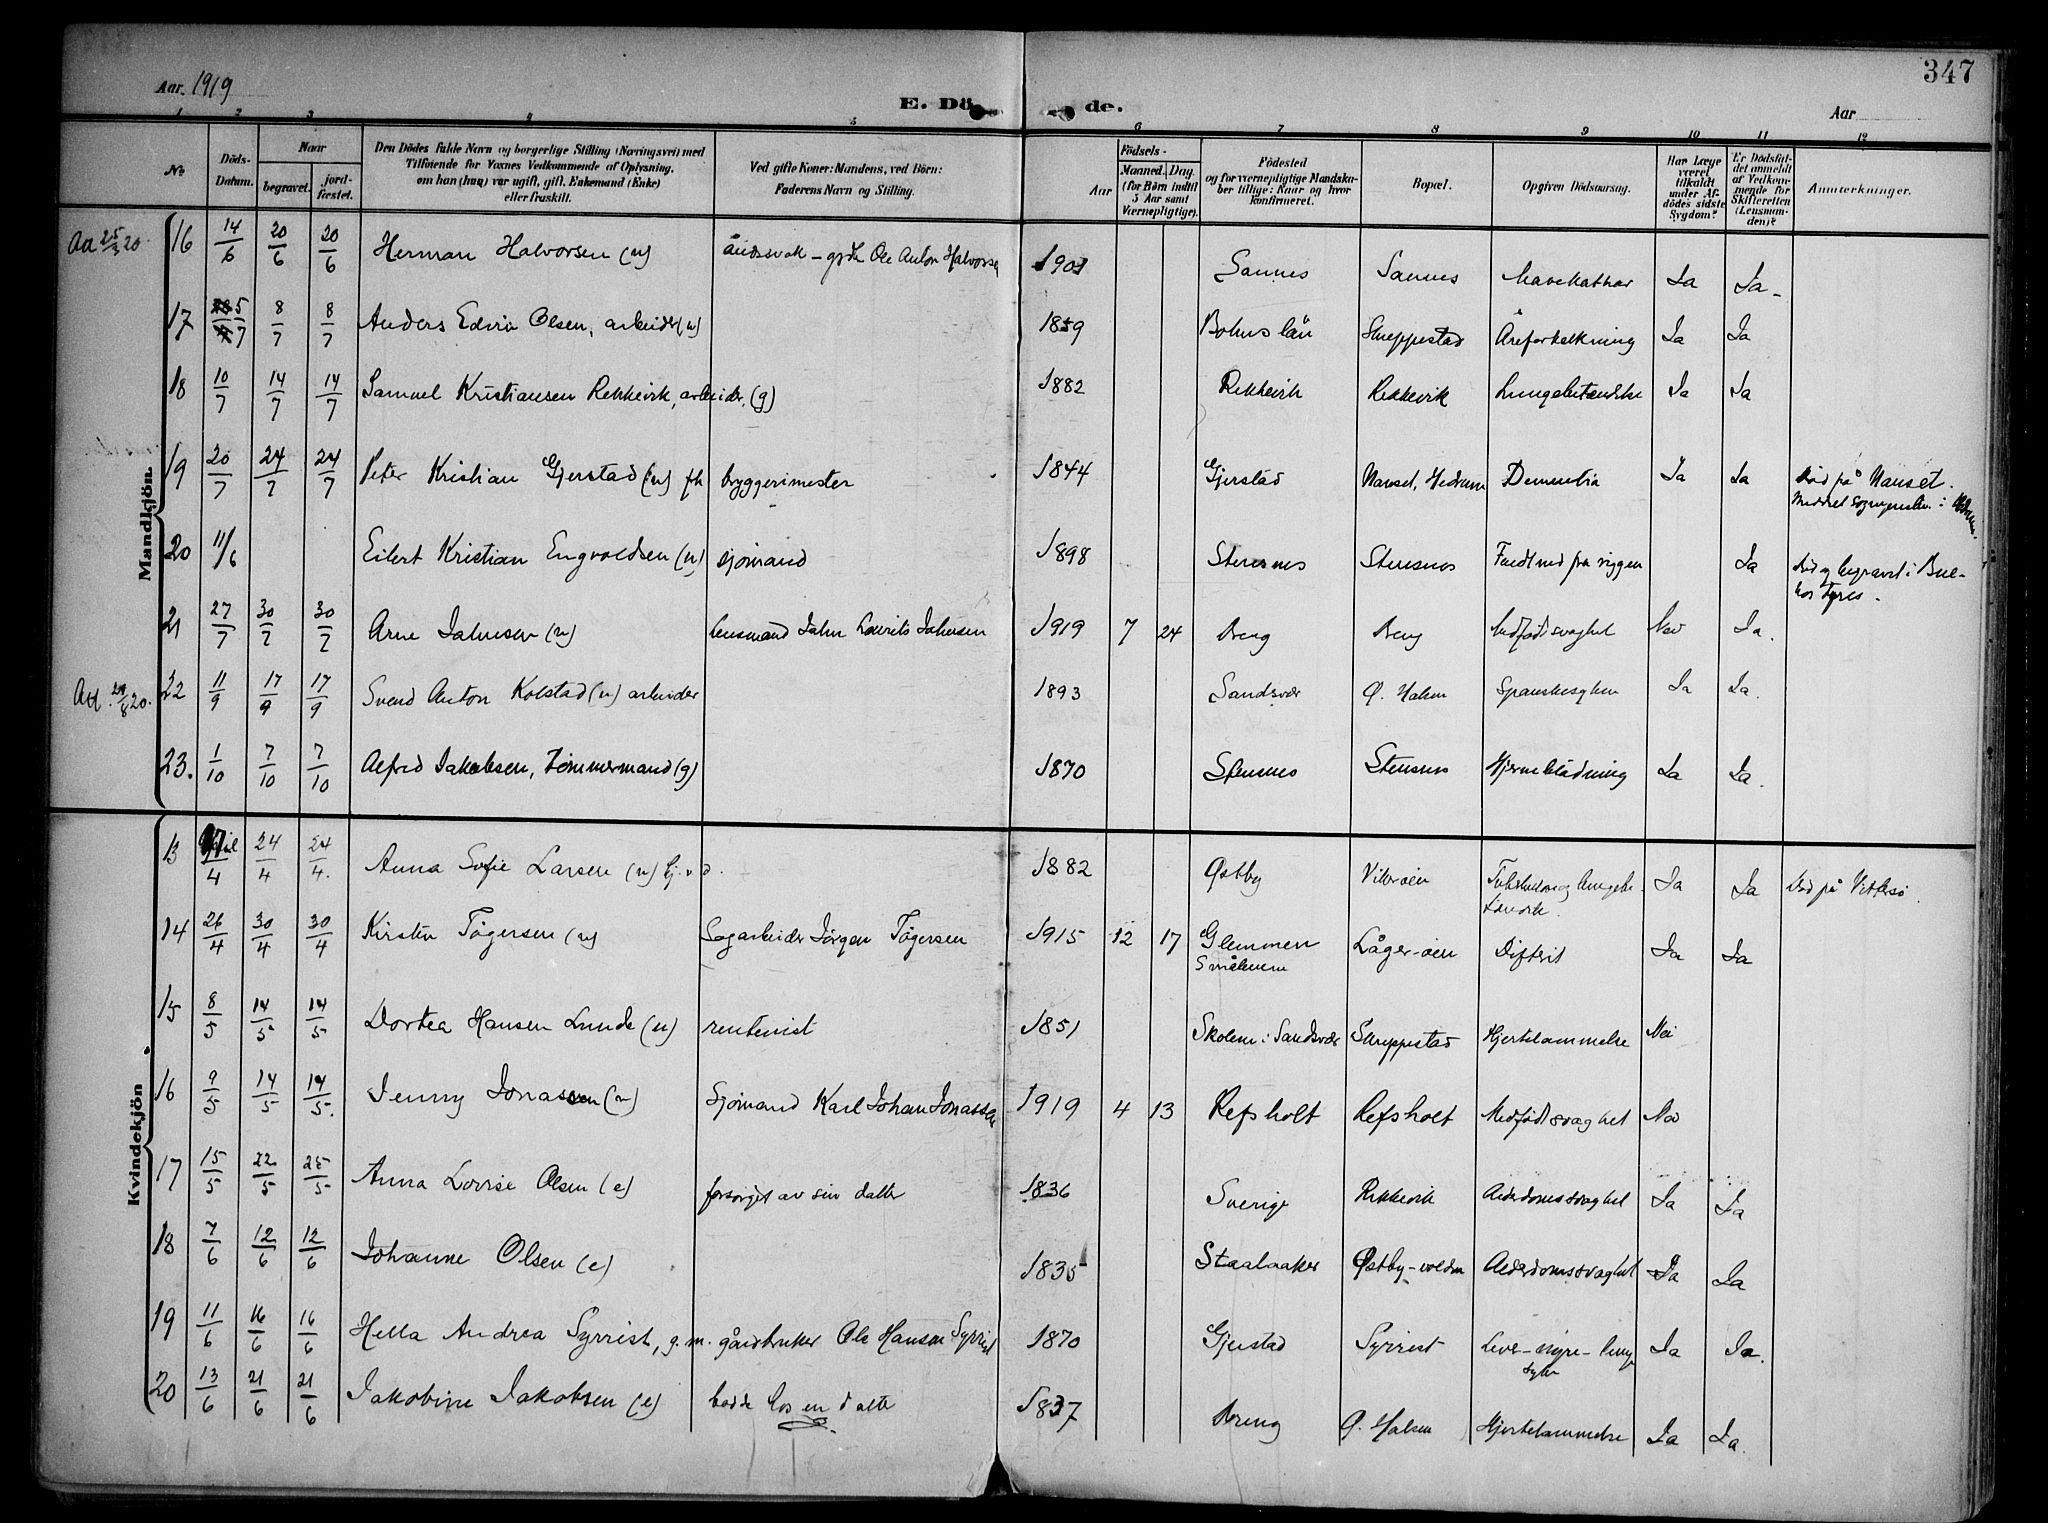 Aar. 1919
E. Dö de.
Aar
347
1 2 3 4 5 6 7 8 9 10 11 12
No
Döds-Datum.
Naar
begravet.
jord-fæstet.
Den Dödes fulde Navn og borgerlige Stilling (Næringsvei) med
Tilföiende for Voxnes Vedkommende af Oplysning,
om han (hun) var ugift, gift, Enkemand (Enke)
eller fraskilt.
Ved gifte Koner: Mandens, ved Börn:
Faderens Navn og Stilling.
Födsels-
Aar
Maaned. Dag.
(for Börn indtil
5 Aar samt
Værnepligtige).
Födested
og for værnepligtige Mandska-
ber tillige: Naar og hvor
konfirmeret.
Bopæl.
Opgiven Dödsaarsag.
Har Læge
været
tilkaldt
under Af-
dödes sidste
Sygdom?
Er Dödsfal-
det anmeldt
af Vedkom-
mende for
Skifteretten
(Lensman-
den)?
Anmærkninger.
Mandkjön
16 14/6 20/6 20/6 Herman Halvorsen (u) åndssvak – Ole Anton Halvorsen 1901 Sannes Sannes Mavekathar Ia Ia
17 5/7 8/7 8/7 Anders Edvin Olsen, arbeider (u) 1859 Bohus län Skreppestad Åreforkalkning Ia Ia
18 10/7 14/7 14/7 Samuel Kristiansen Rekkevik, arbeider, (g) 1882 Rekkevik Rekkevik Lungebetændelse Ia Ia
19 20/7 24/7 24/7 Peter Kristian Gjerstad (u) fh bryggerimester 1844 Gjerstad Nanset, Hedrum Dementia Ia Ia Død på Nanset.
20 11/6 Eilert Kristian Engvoldsen (u) sjømand 1898 Stensnes Stensnes Faldt ned fra riggen Ia Død og begravet i Bue-
nos Ayres.
21 27/7 30/7 30/7 Arne Jahnsen (u) lensmand Jahn Laurits Jahnsen 1919 7 24 Breng Breng Medfødt svaghet Nei Ia.
22 11/9 17/9 17/9 Svend Anton Kolstad (u) arbeider 1893 Sandsvær Ø. Halsen Spanskesyken Ia Ia.
23. 1/10 7/10 7/10 Alfred Jakobsen, Tømmermand (g) 1870 Stensnes Stensnes Hjerneblødning Ia Ia.
Kvindekjön
13 4 24/4 24/4. Anna Sofie Larsen (u) 1882 Østby Ia Ia Død på Vittersø.
14 26/4 30/4 30/4 Kirsten Tøgersen (u) Sagarbeider Jørgen Tøgersen 1915 12 17 Glemmen
Smålenene Lågerøen Difterit Ia Ia
15 8/5 14/5 14/5 Dortea Hansen Lunde (u) rentenist 1851 Skolem i Sandsvær Skreppestad Hjertelammelse Nei
16 9/5 14/5 14/5. Jenny Jonassen (u) Sjømand Karl Johan Jonassen 1919 4 13 Refsholt Refsholt Medfødt svaghet Nei
17 15/5 22/5 25/5 Anna Lovise Olsen (e) forsørget av sin datter 1836 Sverige Rekkevik Alderdomssvaghet Ia Ia
18 7/6 12/6 12/6 Johanne Olsen (e) 1835 Staalaaker Østby-volden Alderdomssvaghet Ia Ia
19 11/6 16/6 16/6 Hella Andrea Syrrist, g.m. gårdbruker Ole Hansen Syrrist 1870 Gjerstad Syrrist Lever-nyre-lunge
syke Ia Ia.
20 13/6 21/6 21/6 Jakobine Jakobsen (e) bodde hos en datter 1837 Breng Ø. Halsen Hjertelammelse Ia Ia.